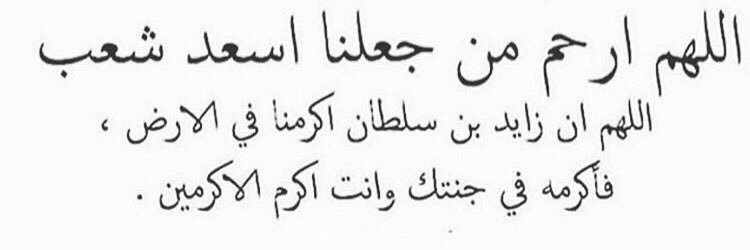 اللهم ارحم من جعلنا اسعد شعب
اللهم ان زايد بن سلطان اكرمنا في الارض ،
فأكرمه في جنتك وانت اكرم الاكرمين .